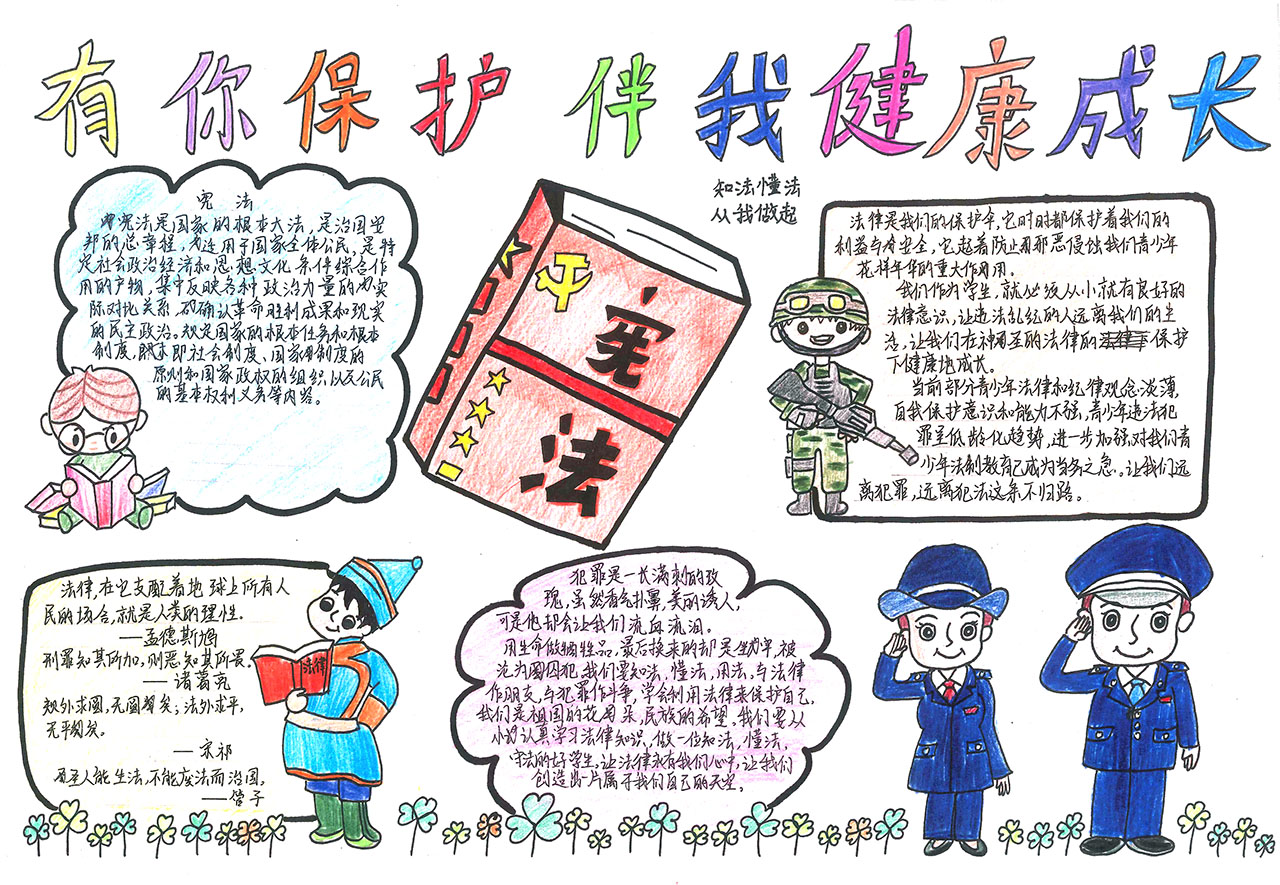 有你保护 伴我健康成长
知法懂法
从我做起
宪 法
宪法是国家的根本大法，是治国安
邦的总章程，适用于国家全体公民，是特
定社会政治经济和思想文化条件综合作
用的产物，集中反映各种政治力量的实
际对比关系，确认革命胜利成果和现实
的民主政治。规定国家的根本任务和根本
制度，即社会制度、国家制度的
原则和国家政权的组织，以及公民
的基本权利义务等内容。
宪
法
法律是我们的保护伞，它时时都保护着我们的
利益与安全，它起着防止邪恶侵蚀我们青少年
花样年华的重大作用。
我们作为学生，就必须从小就有良好的
法律意识，让违法乱纪的人远离我们的生
活，让我们在神圣的法律的保护
下健康地成长。
当前部分青少年法律和纪律观念淡薄，
自我保护意识和能力不强，青少年违法犯
罪呈低龄化趋势，进一步加强对我们青
少年法制教育已成为当务之急。让我们远
离犯罪，远离犯法这条不归路。
法律，在它支配着地球上所有人
民的场合，就是人类的理性。
——孟德斯鸠
刑罪知其所加，则恶知其所畏。
——诸葛亮
规外求圆，无圆矣；法外求平，
无平矣。
——宋祁
圣人能生法，不能废法而治国。
——管子
法律
犯罪是一长满刺的玫
瑰，虽然香气扑鼻，美的诱人，
可是他却会让我们流血流泪。
用生命做牺牲品，最后换来的却是坐牢，被
沦为囚犯。我们要知法，懂法，用法，与法律
作朋友，与犯罪作斗争，学会利用法律来保护自己，
我们是祖国的花朵，民族的希望，我们要从
小认真学习法律知识，做一位知法，懂法，
守法的好学生，让法律永存我们心中，让我们
创造出一片属于我们自己的天空。